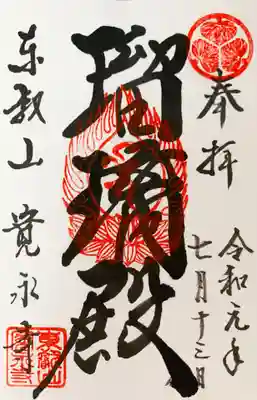 奉拝
令和元年
七月十三日
瑠璃殿
東叡山 寛永寺
東叡山